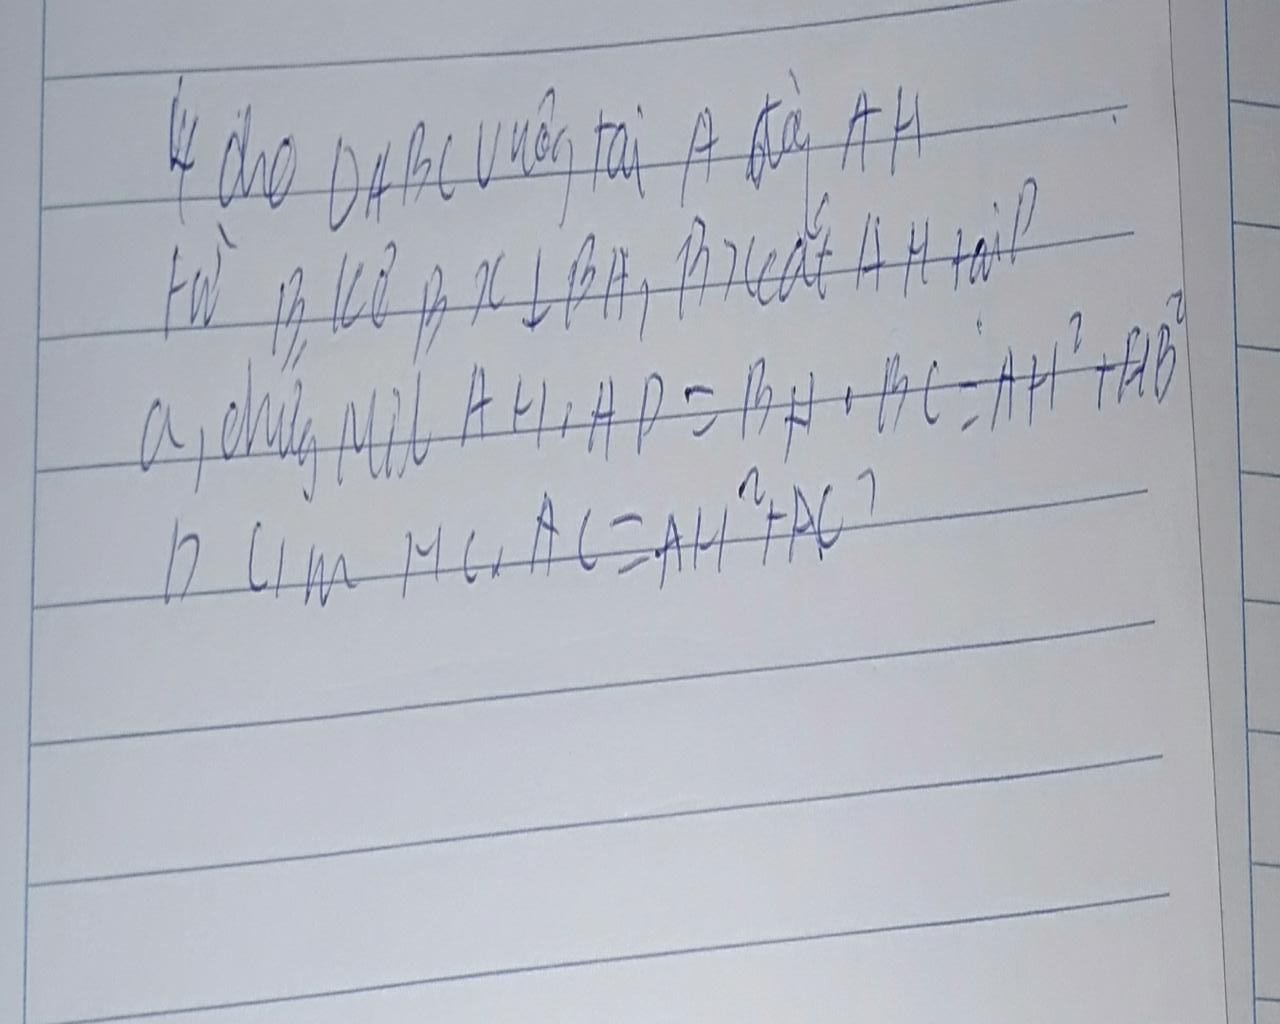 4 cho DABC vuông tại A đg AH
từ B, kẻ Bx ⊥ BA, Bx cắt AH tại D
a, chứng Mil AH . AD = BH . BC = AH² + HB²
b C/m HC . AC = AH² + AC²